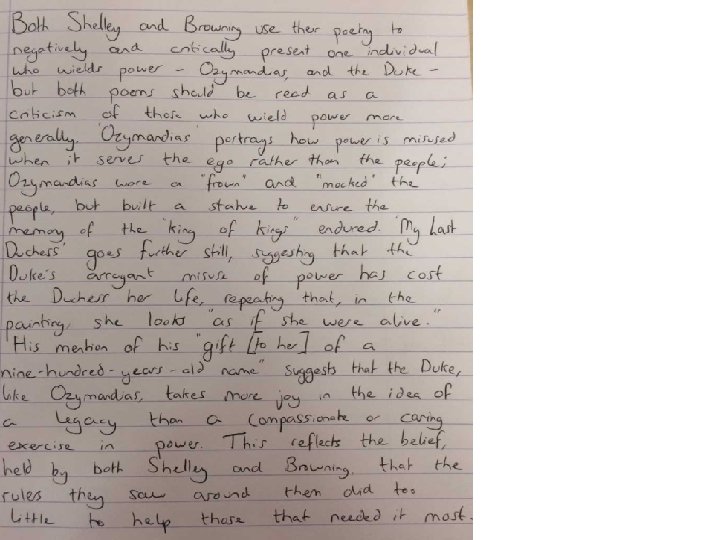 Both Shelley and Browning use their poetry to
negatively and critically present one individual
who wields power - Ozymandias, and the Duke -
but both poems should be read as a
criticism of those who wield power more
generally. 'Ozymandias' portrays how power is misused
when it serves the ego rather than the people;
Ozymandias wore a "frown" and "mocked" the
people, but built a statue to ensure the
memory of the "king of kings" endured. 'My Last
Duchess' goes further still, suggesting that the
Duke's arrogant misuse of power has cost
the Duchess her life, repeating that, in the
painting, she looks "as if she were alive."
His mention of his "gift [to her] of a
nine-hundred-years-old name" suggests that the Duke,
like Ozymandias, takes more joy in the idea of
a legacy than a compassionate or caring
exercise in power. This reflects the belief,
held by both Shelley and Browning, that the
rulers they saw around them did too
little to help those that needed it most.